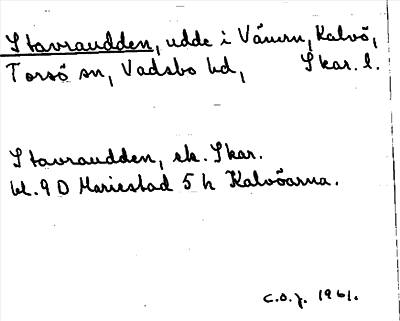 Stavraudden, udde i Vänern, Kalvö,
Torsö sn, Vadsbo hd, Skar. l.
Stavraudden, ek. Skar.
bl. 9 D Mariestad 5 h Kalvöarna.
C.O.J. 1961.